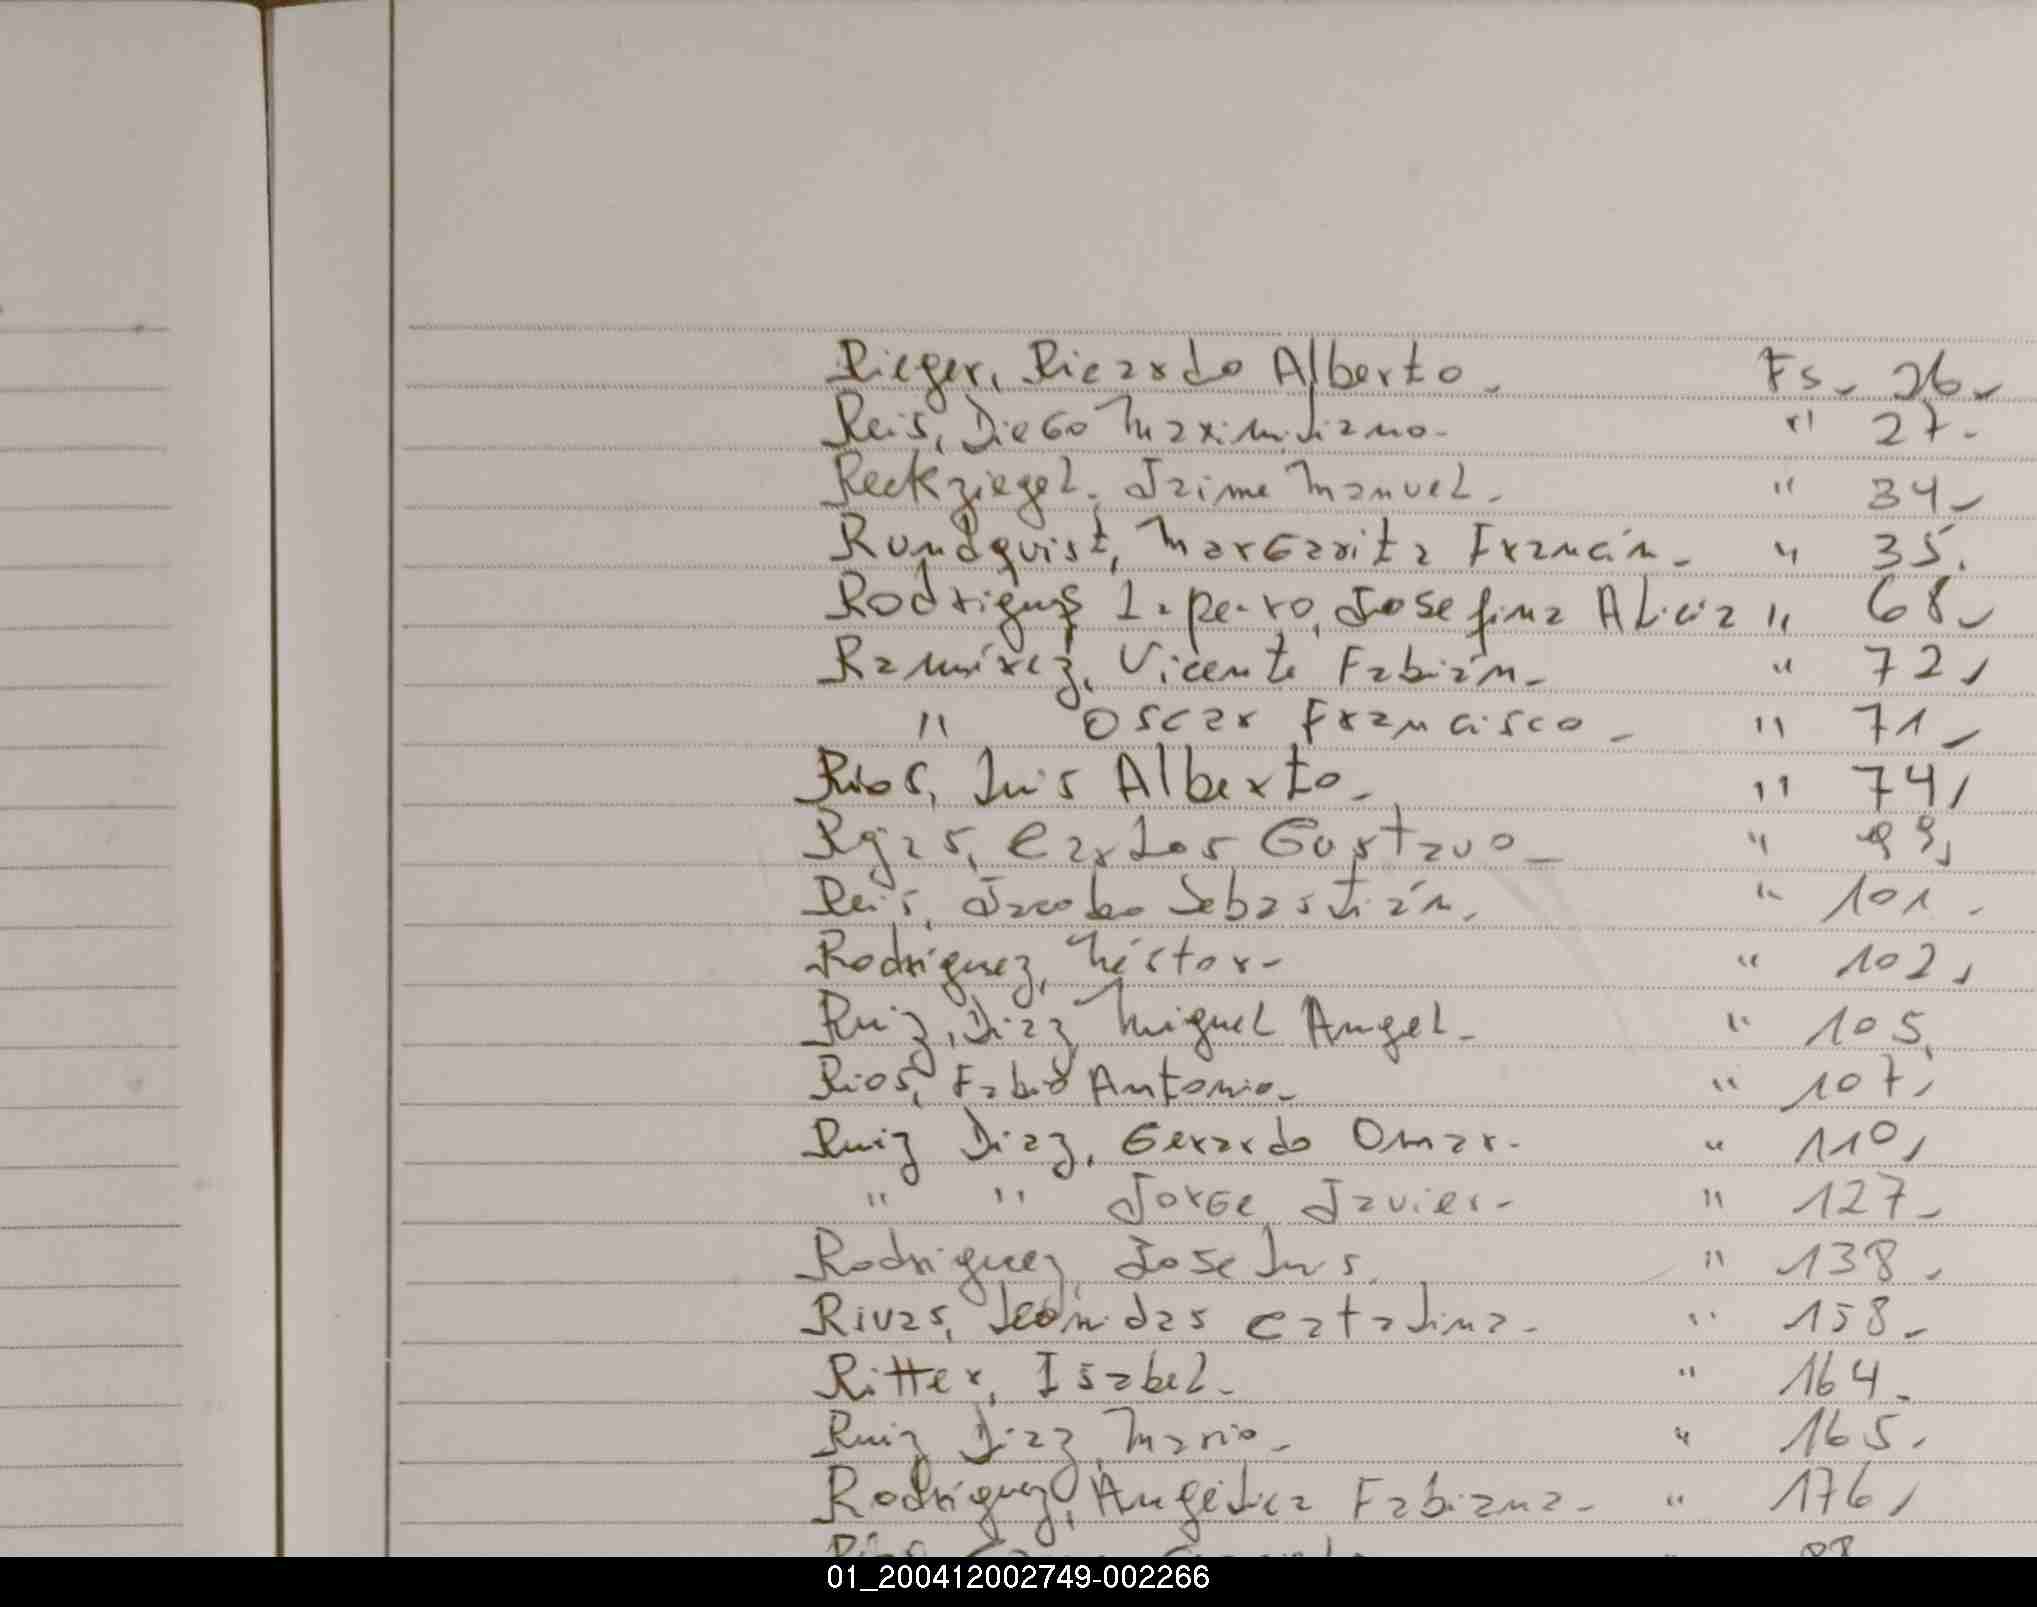 Rieger, Ricardo Alberto. Fs. 26.
Reis, Diego Maximiliano. " 27.
Reckziegel. Jaime Manuel. " 34.
Rundquist, Margarita Francin. " 35.
Rodriguez Josefina Alicia " 68.
Ramírez, Vicente Fabián. " 72,
" Oscar Francisco. " 71.
Rios, Luis Alberto. " 74,
Carlos Gustavo. "
Reis, Jacobo Sebastián. " 101.
Rodriguez, Néstor. " 102,
Ruiz, Diaz Miguel Angel. " 105,
Rios, Fabio Antonio. " 107,
Ruiz Diaz, Gerardo Omar. " 110,
" " Jorge Javier. " 127.
Rodriguez, Jose Luis. " 138.
Rivas, Leónidas Catalina. " 158.
Ritter, Isabel. " 164.
Ruiz Diaz, Mario. " 165.
Rodriguez, Angélica Fabiana. " 176,
01_200412002749-002266